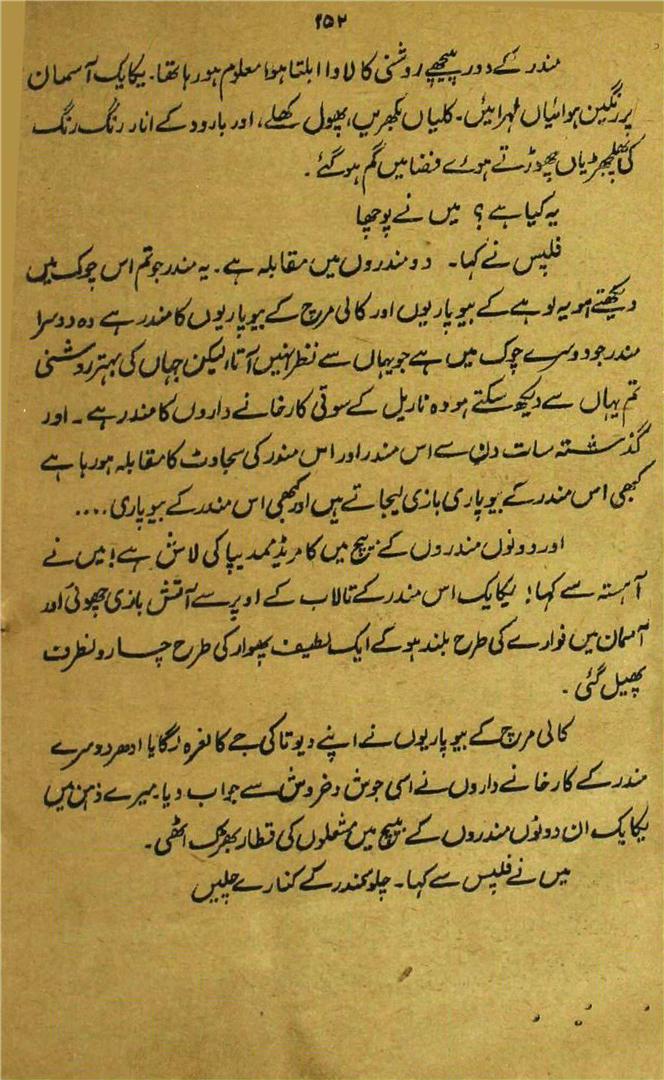 ۲۵۲
مندر کے دور پیچھے روشنی کا لاوا ابلتا ہوا معلوم ہو رہا تھا۔ یکایک آسمان
پر رنگین ہوائیاں لہرائیں۔ کلیاں بکھریں، پھول کھلے، اور بارود کے انار رنگ رنگ
کی پھلجھڑیاں چھوڑتے ہوئے فضا میں گم ہو گئے۔
یہ کیا ہے؟ میں نے پوچھا
فلپس نے کہا۔ دو مندروں میں مقابلہ ہے۔ یہ مندر جو تم اس چوک میں
دیکھتے ہو یہ لوہے کے بیوپاریوں اور کالی مرچ کے بیوپاریوں کا مندر ہے وہ دوسرا
مندر جو دوسرے چوک میں ہے جو یہاں سے نظر نہیں آتا، لیکن جہاں کی بہتر روشنی
تم یہاں سے دیکھ سکتے ہو وہ ناریل کے سوتی کارخانے داروں کا مندر ہے۔ اور
گذشتہ سات دن سے اس مندر اور اس مندر کی سجاوٹ کا مقابلہ ہو رہا ہے
کبھی اس مندر کے بیوپاری بازی لیجاتے ہیں اور کبھی اس مندر کے بیوپاری....
اور دونوں مندروں کے بیچ میں کامریڈ ممدیپا کی لاش ہے! میں نے
آہستہ سے کہا! یکایک اس مندر کے تالاب کے اوپر سے آتش بازی چھوٹی اور
آسمان میں فوارے کی طرح بلند ہو کے ایک لطیف پھوار کی طرح چاروں طرف
پھیل گئی۔
کالی مرچ کے بیوپاریوں نے اپنے دیوتا کی جے کا نعرہ لگایا ادھر دوسرے
مندر کے کارخانے داروں نے اسی جوش و خروش سے جواب دیا۔ میرے ذہن میں
یکایک ان دونوں مندروں کے بیچ میں مشعلوں کی قطار بھڑک اٹھی۔
میں نے فلپس سے کہا۔ چلو سمندر کے کنارے چلیں